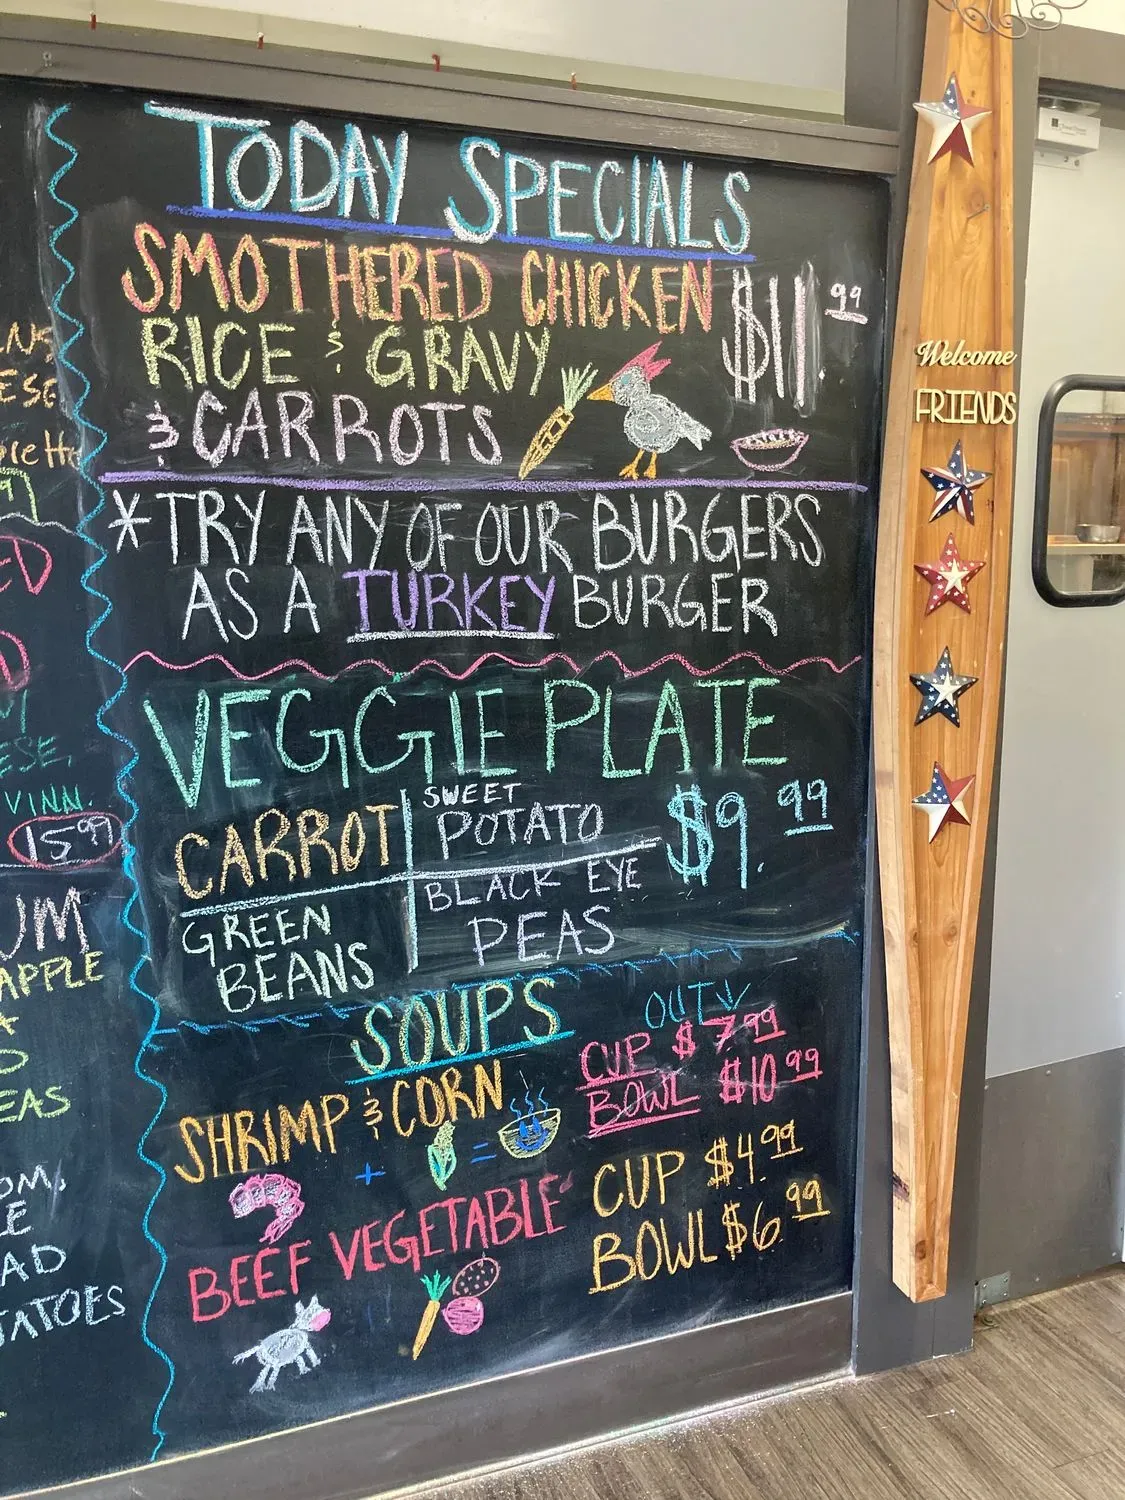 TODAY SPECIALS
SMOTHERED CHICKEN $11.99
RICE & GRAVY
& CARROTS
*TRY ANY OF OUR BURGERS
AS A TURKEY BURGER
VEGGIE PLATE
CARROT
SWEET
POTATO
$9.99
GREEN
BEANS
BLACK EYE
PEAS
SOUPS
OUT
SHRIMP & CORN
CUP $7.99
BOWL $10.99
BEEF VEGETABLE
CUP $4.99
BOWL $6.99
Welcome
FRIENDS
VINN.
15.99
APPLE